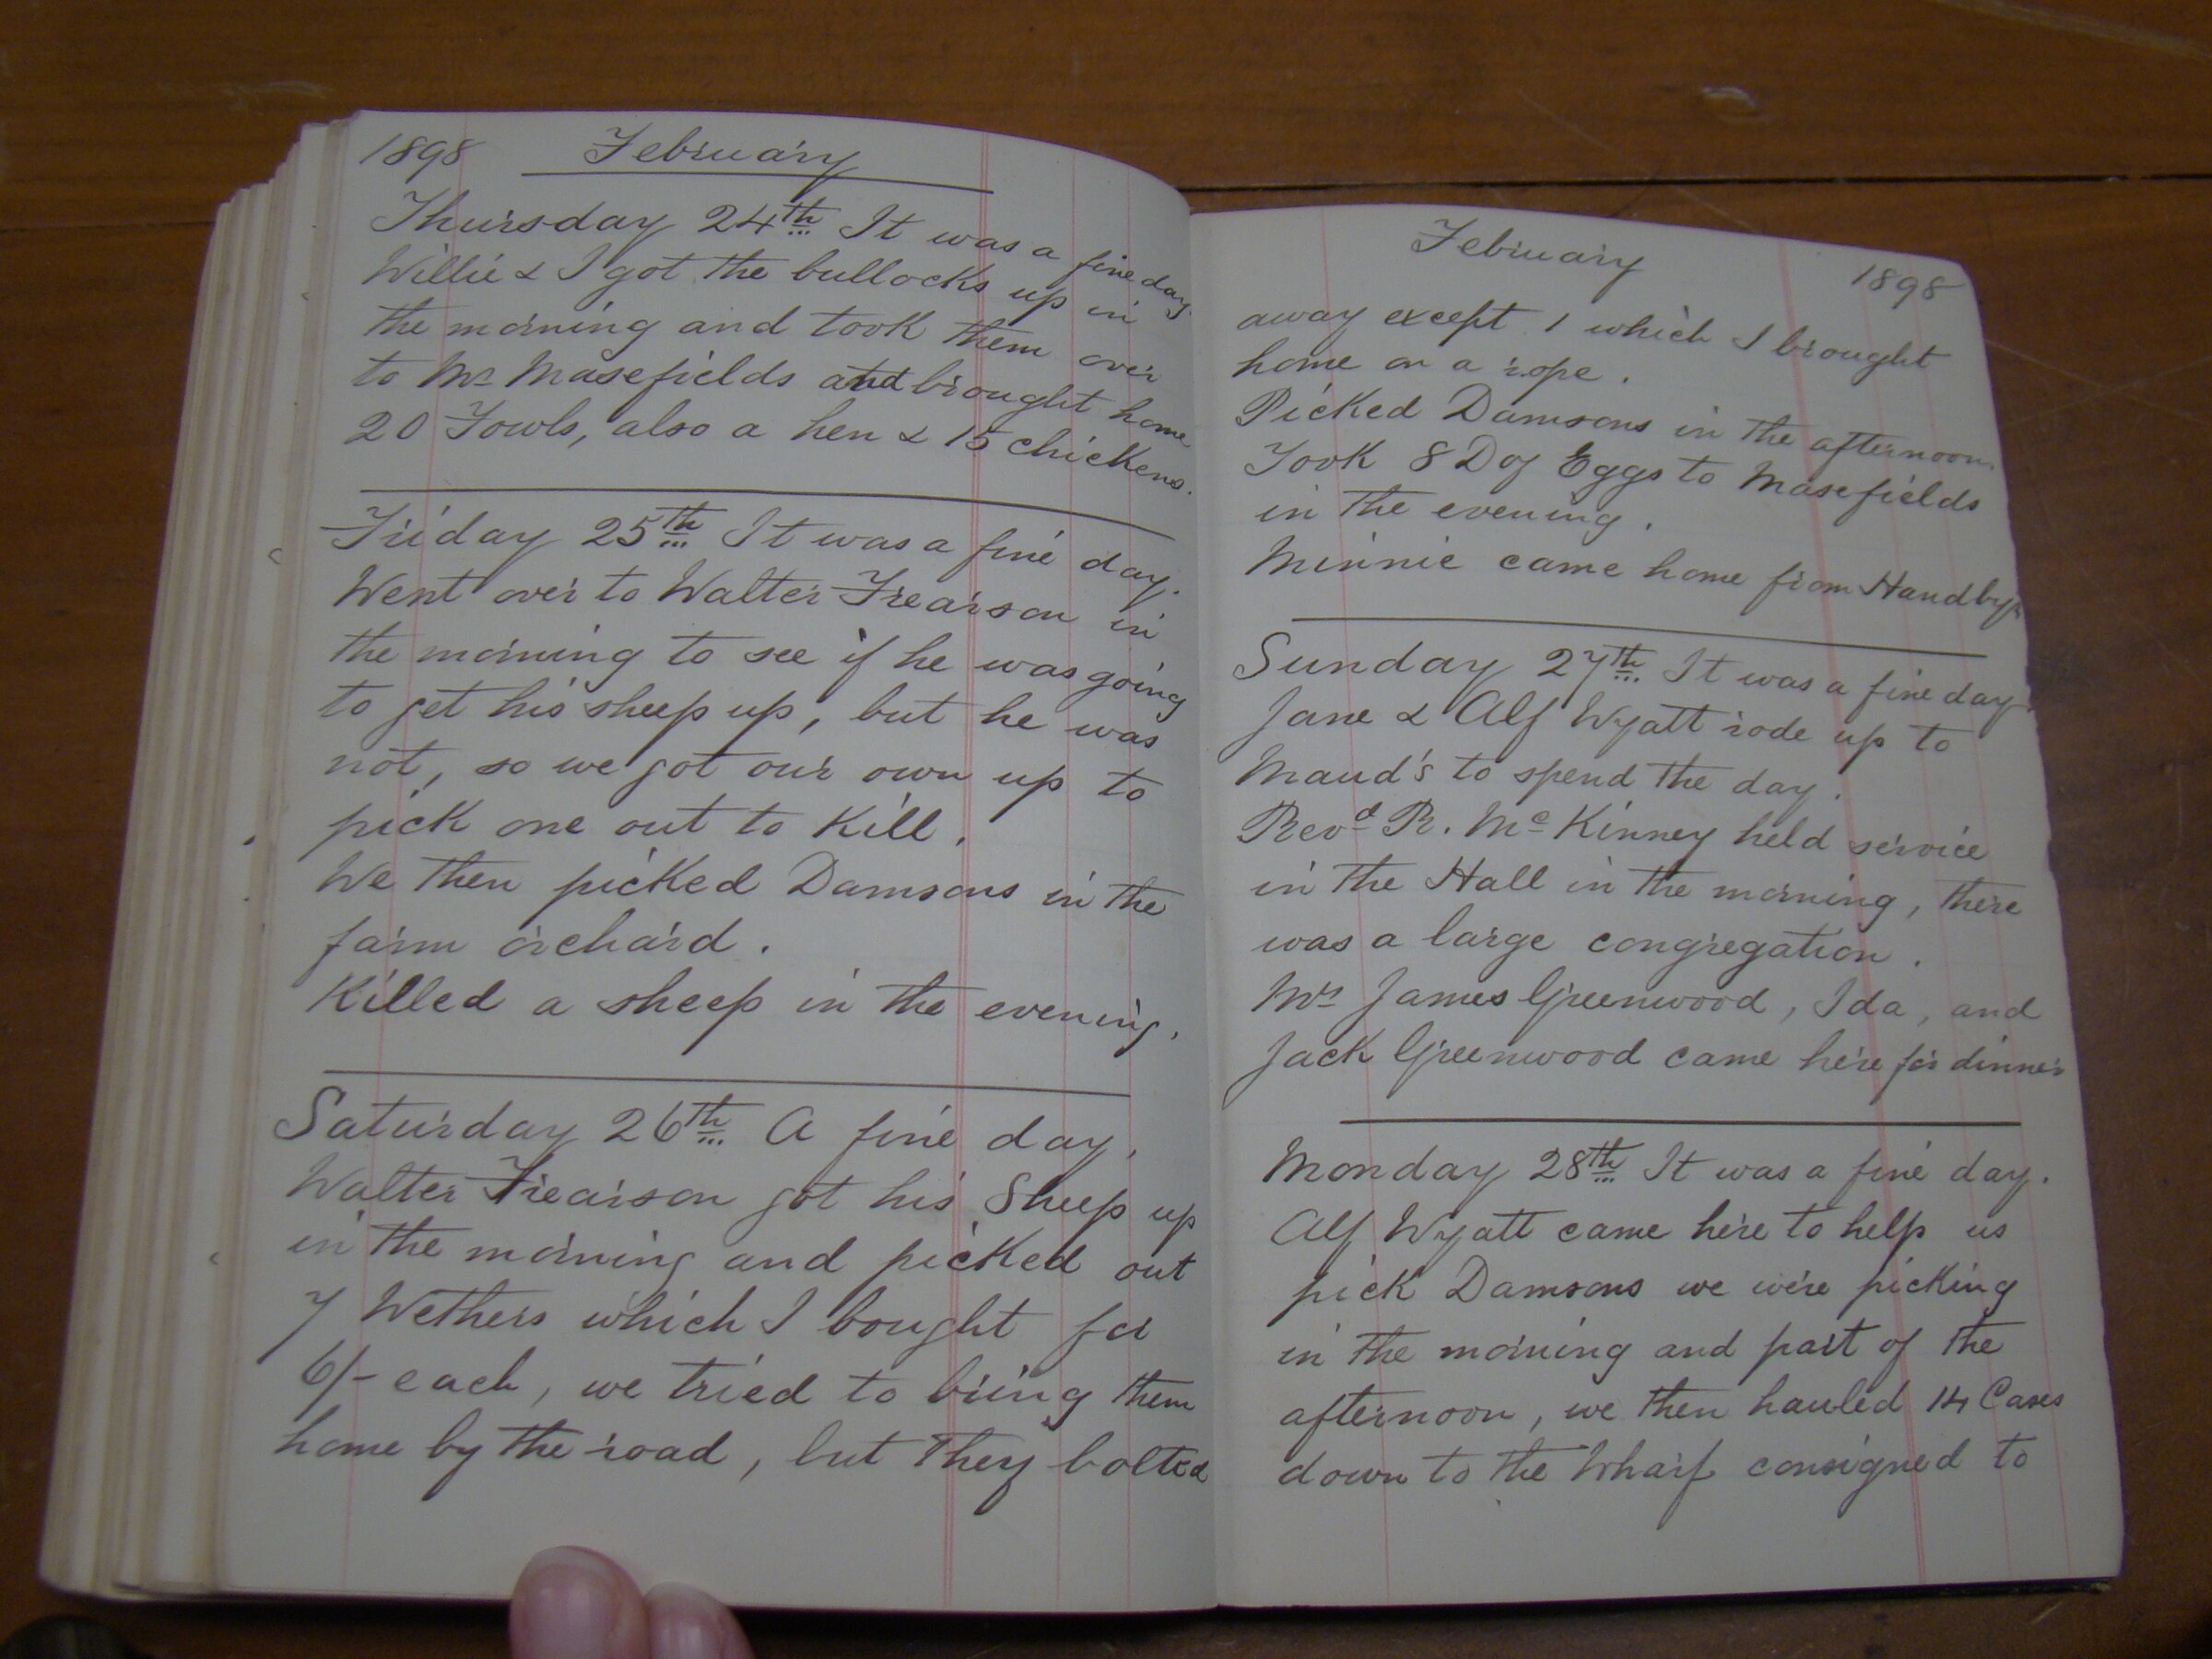 1898 February
Thursday 24th It was a fine day.
Willie & I got the bullocks up in
the morning and took them over
to Mr Masefields and brought home
20 Fowls, also a hen & 15 chickens.
Friday 25th It was a fine day.
Went over to Walter Frearson in
the morning to see if he was going
to get his sheep up, but he was
not, so we got our own up to
pick one out to Kill.
We then picked Damsons in the
farm orchard.
Killed a sheep in the evening.
Saturday 26th A fine day.
Walter Frearson got his Sheep up
in the morning and picked out
7 Wethers which I bought for
6/- each, we tried to bring them
home by the road, but they bolted
February 1898
away except 1 which I brought
home on a rope.
Picked Damsons in the afternoon.
Took 8 Doz Eggs to Masefields
in the evening.
Minnie came home from Handbys
Sunday 27th It was a fine day.
Jane & Alf Wyatt rode up to
Maud's to spend the day.
Revd R. McKinney held service
in the Hall in the morning, there
was a large congregation.
Mrs James Greenwood, Ida, and
Jack Greenwood came here for dinner
Monday 28th It was a fine day.
Alf Wyatt came here to help us
pick Damsons we were picking
in the morning and part of the
afternoon, we then hauled 14 Cases
down to the Wharf consigned to